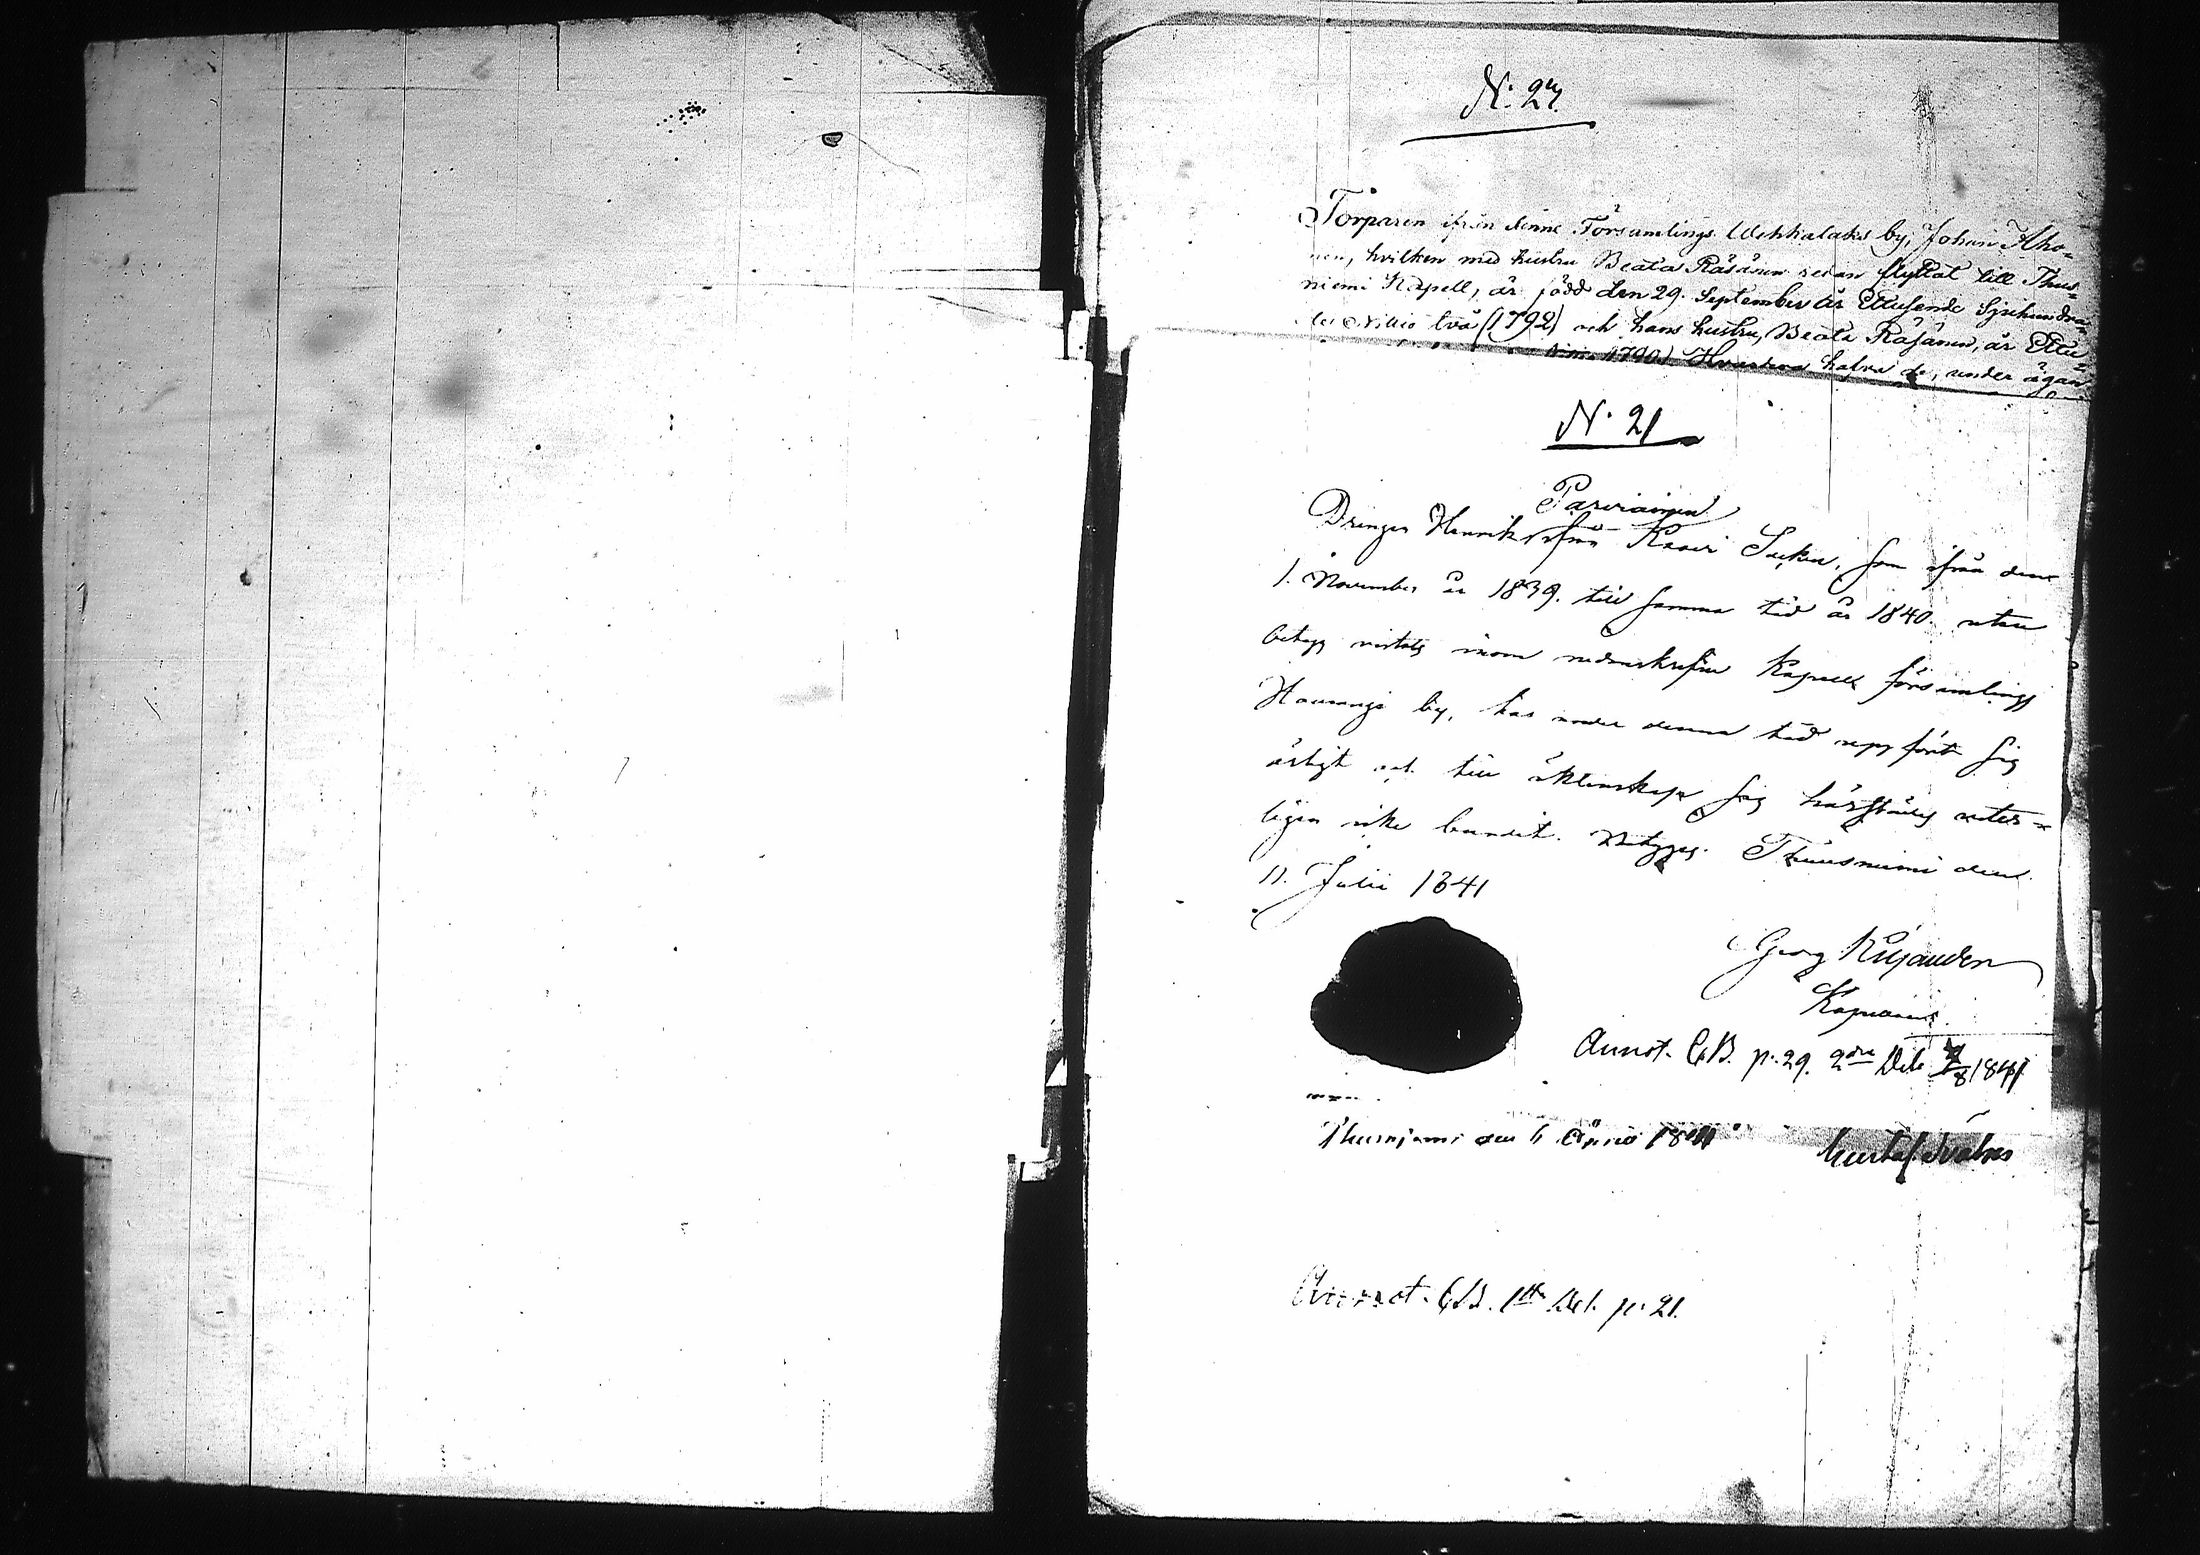 N. 27.
Torparen ifrån denne Församlings Wehkalaks by, Johan Aho=
nen, hvilken med hustru Beata Räsänen sedan flyttat till Thus=
niemi Kapell, är född den 29. September år Ettusende Sjuhundra=
de Nittio två (1792) och hans hustru, Beata Räsänen, år Ettu=
1790) Hvarken hafva de, under
N. 21
Parviainen
Drengen Henrik ifrån Kaavi Socken, som ifrån den
1. November år 1839. till samma tid år 1840. utan
betyg vistats inom nedanskrefne Kapells församlings
by, har under denna tid uppfört sig
ärligt och till äktenskap sig härstädes veter=
ligen icke bundit. Betygas. Thuusniemi den
11. Julii 1841
Georg
Kapellan.
Annot. C.B. p. 29. 2dra Del. /8 1841
Thusniemi den 1841
Gustaf
Annot. C.B. 1sta Del. p. 21.